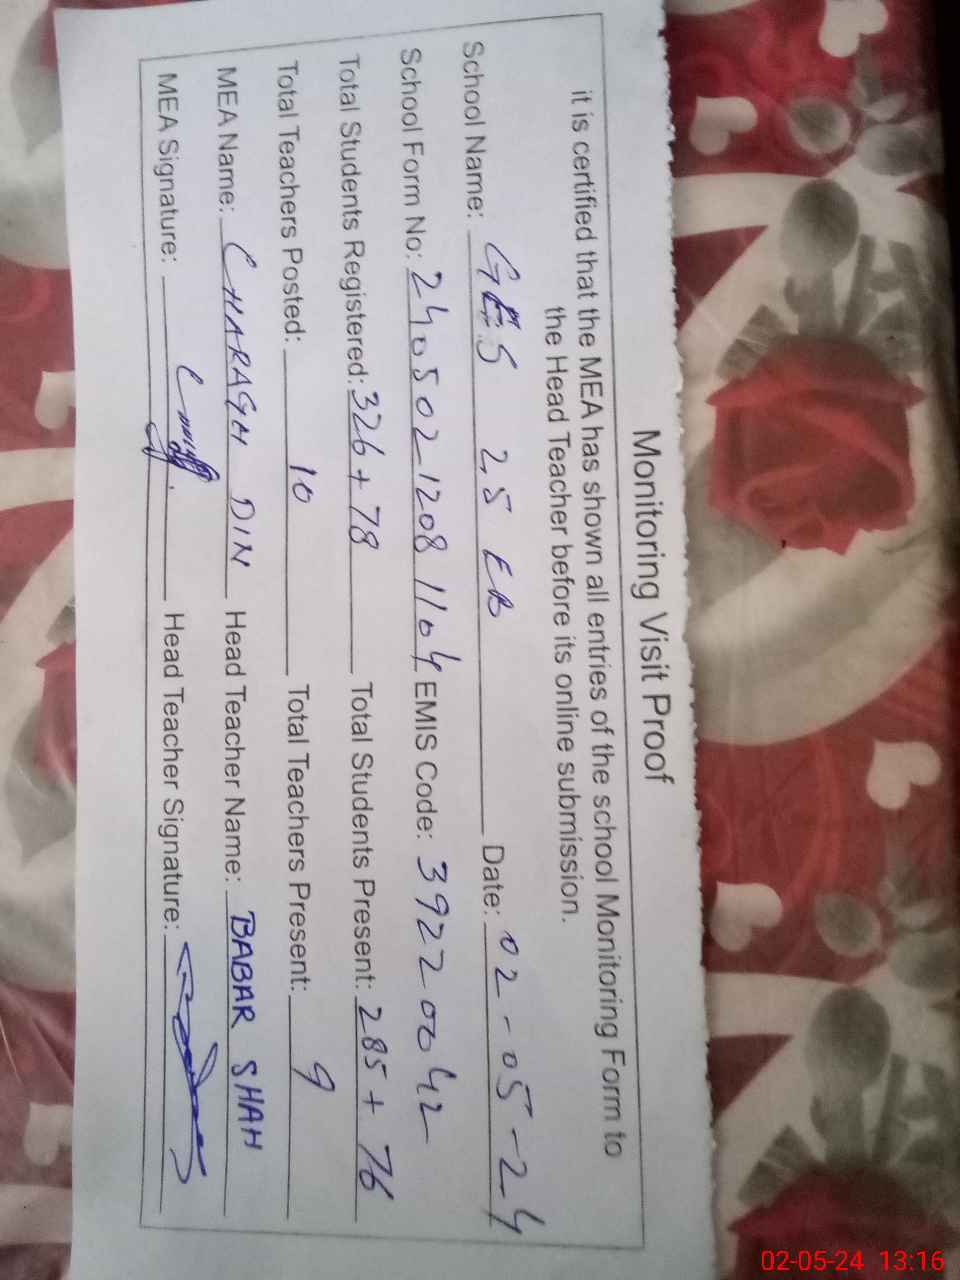 Monitoring Visit Proof
it is certified that the MEA has shown all entries of the school Monitoring Form to
the Head Teacher before its online submission.
School Name: GES 25 EB Date: 02-05-24
School Form No: 24050212081104 EMIS Code: 39220042
Total Students Registered: 326+78 Total Students Present: 285+76
Total Teachers Posted: 10 Total Teachers Present: 9
MEA Name: CHARAGH DIN Head Teacher Name: BABAR SHAH
MEA Signature: Head Teacher Signature:
02-05-24 13:16